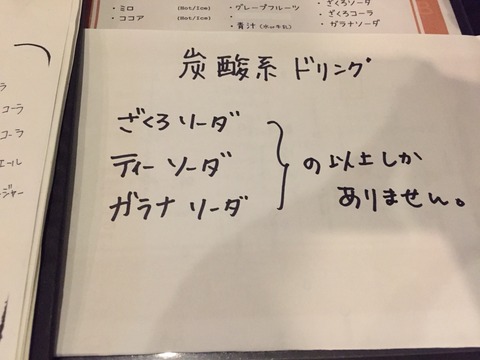 ・ミロ (Hot/Ice)
・ココア (Hot/Ice)
・グレープフルーツ
・青汁
ざくろソーダ
・ざくろコーラ
・ガラナソーダ
コーラ
コーラ
エール
ジャー
炭酸系 ドリング
ざくろ ソーダ
ティー ソーダ
ガラナ ソーダ
の以上しか
ありません。